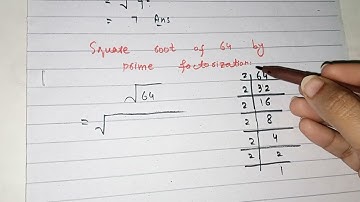 = √9
= 7 Ans
Square root of 64 by
prime factorization:
√64
= √
2 | 64
2 | 32
2 | 16
2 | 8
2 | 4
2 | 2
1